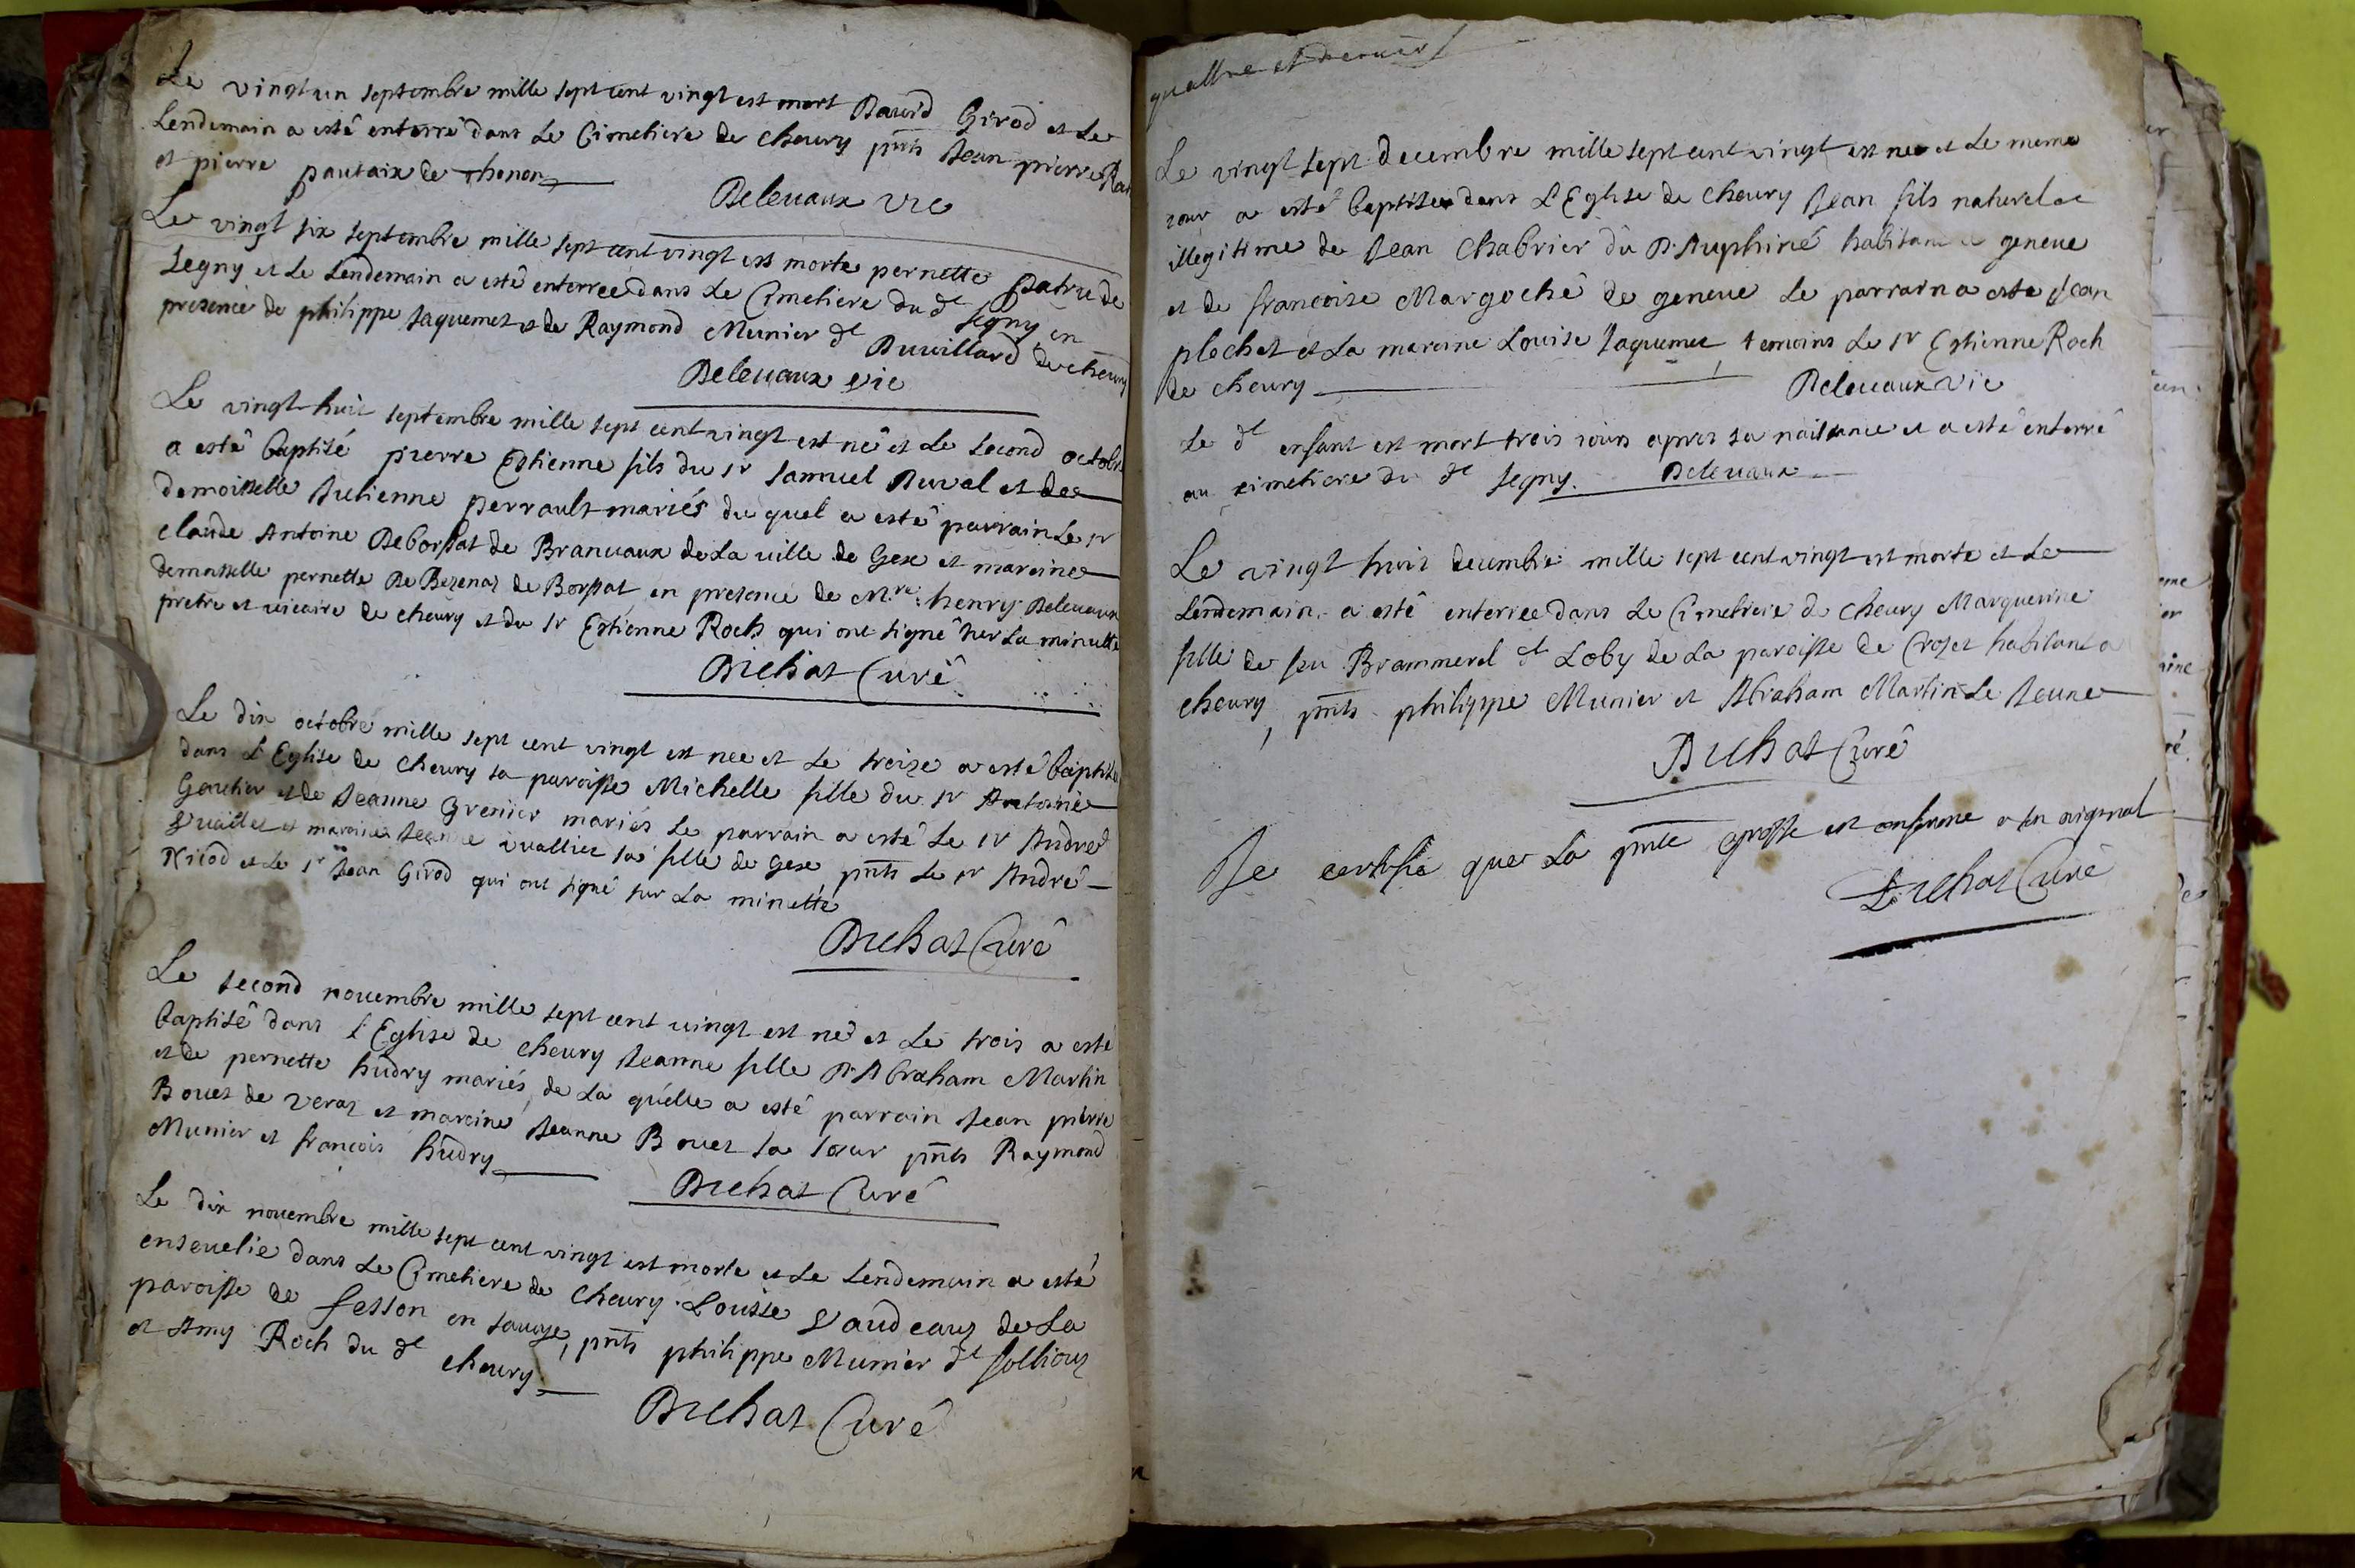 Le vingt un septembre mille sept cent vingt est mort David Girod et le
lendemain a esté enterré dans le Cimetiere de Cheury pnts Jean pierre
et pierre pautaix de Thonon
Deleuaux vic
Le vingt six septembre mille sept cent vingt est morte pernette patru de
Segny et le lendemain a esté enterree dans le Cimetiere du dt Segny en
presence de philippe Jaquemet et de Raymond Munier dt Duvillard de cheury
Deleuaux vic
Le vingt huit septembre mille sept cent vingt est né et le second octobre
a esté baptisé pierre Estienne fils du sr Samuel Duval et de
demoiselle Julienne perrault mariés du quel a esté parrain le sr
claude Antoine Deborsat de Branuaux de la ville de Gex et maraine
demaiselle pernette De Bezenas de Borssat, en presence de Mre henry Deleuaux
pretre et vicaire de cheury et du sr Estienne Roch qui ont signé sur la minutte
Duchat Curé
Le dix octobre mille sept cent vingt est nee et le treize a esté baptisée
dans l'Eglise de Cheury sa paroisse Michelle fille du sr Antoine
Gautier et de Jeanne Grenier mariés le parrain a esté le sr Andre
Vuaillet et maraine Jeanne vuallier sa fille de Gex pnts le sr André
Nicod et le sr Jean Girod qui ont signé sur la minette
Duchat Curé
Le second nouembre mille sept cent vingt est né et le trois a esté
baptisé dans l'Eglise de Cheury Jeanne fille D'Abraham Martin
et de pernette hudry mariés, de la quelle a esté parrain Jean pierre
Bouet de veraz et maraine Jeanne Bouet sa soeur pnts Raymond
Munier et francois hudry
Duchat Curé
Le dix nouembre mille sept cent vingt est morte et le lendemain a esté
enseuelie dans le Cimetiere de Cheury Louise Vaudeaux de la
paroisse de Sesson en sauoye, pnts philippe Munier dt solliouz
et Amy Roch du dt cheury
Duchat Curé
quattre et dernier
Le vingt sept decembre mille sept cent vingt est né et le meme
jour a esté baptisé dans l'Eglise de Cheury Jean fils naturel et
illegitime de Jean Chabrier du D'Auphiné habitant a geneue
et de francoise Margoché de geneue le parrain a esté Jean
plochet et la maraine Louise Jaquemet temoins le sr Estienne Roch
de cheury
Deleuaux vic
Le dt enfant est mort trois jours apres sa naissance et a esté enterré
au cimetiere du dt Segny. Deleuaux
Le vingt huit decembre mille sept cent vingt est morte et le
lendemain a esté enterree dans le Cimetiere de Cheury Marguerine
fille de feu Brammerel dt Loby de la paroisse de Crozet habitant a
cheury, pnts philippe Munier et Abraham Martin le Jeune
Duchat Curé
Je certifie que la pnte grosse est conforme a son original
Duchat Curé